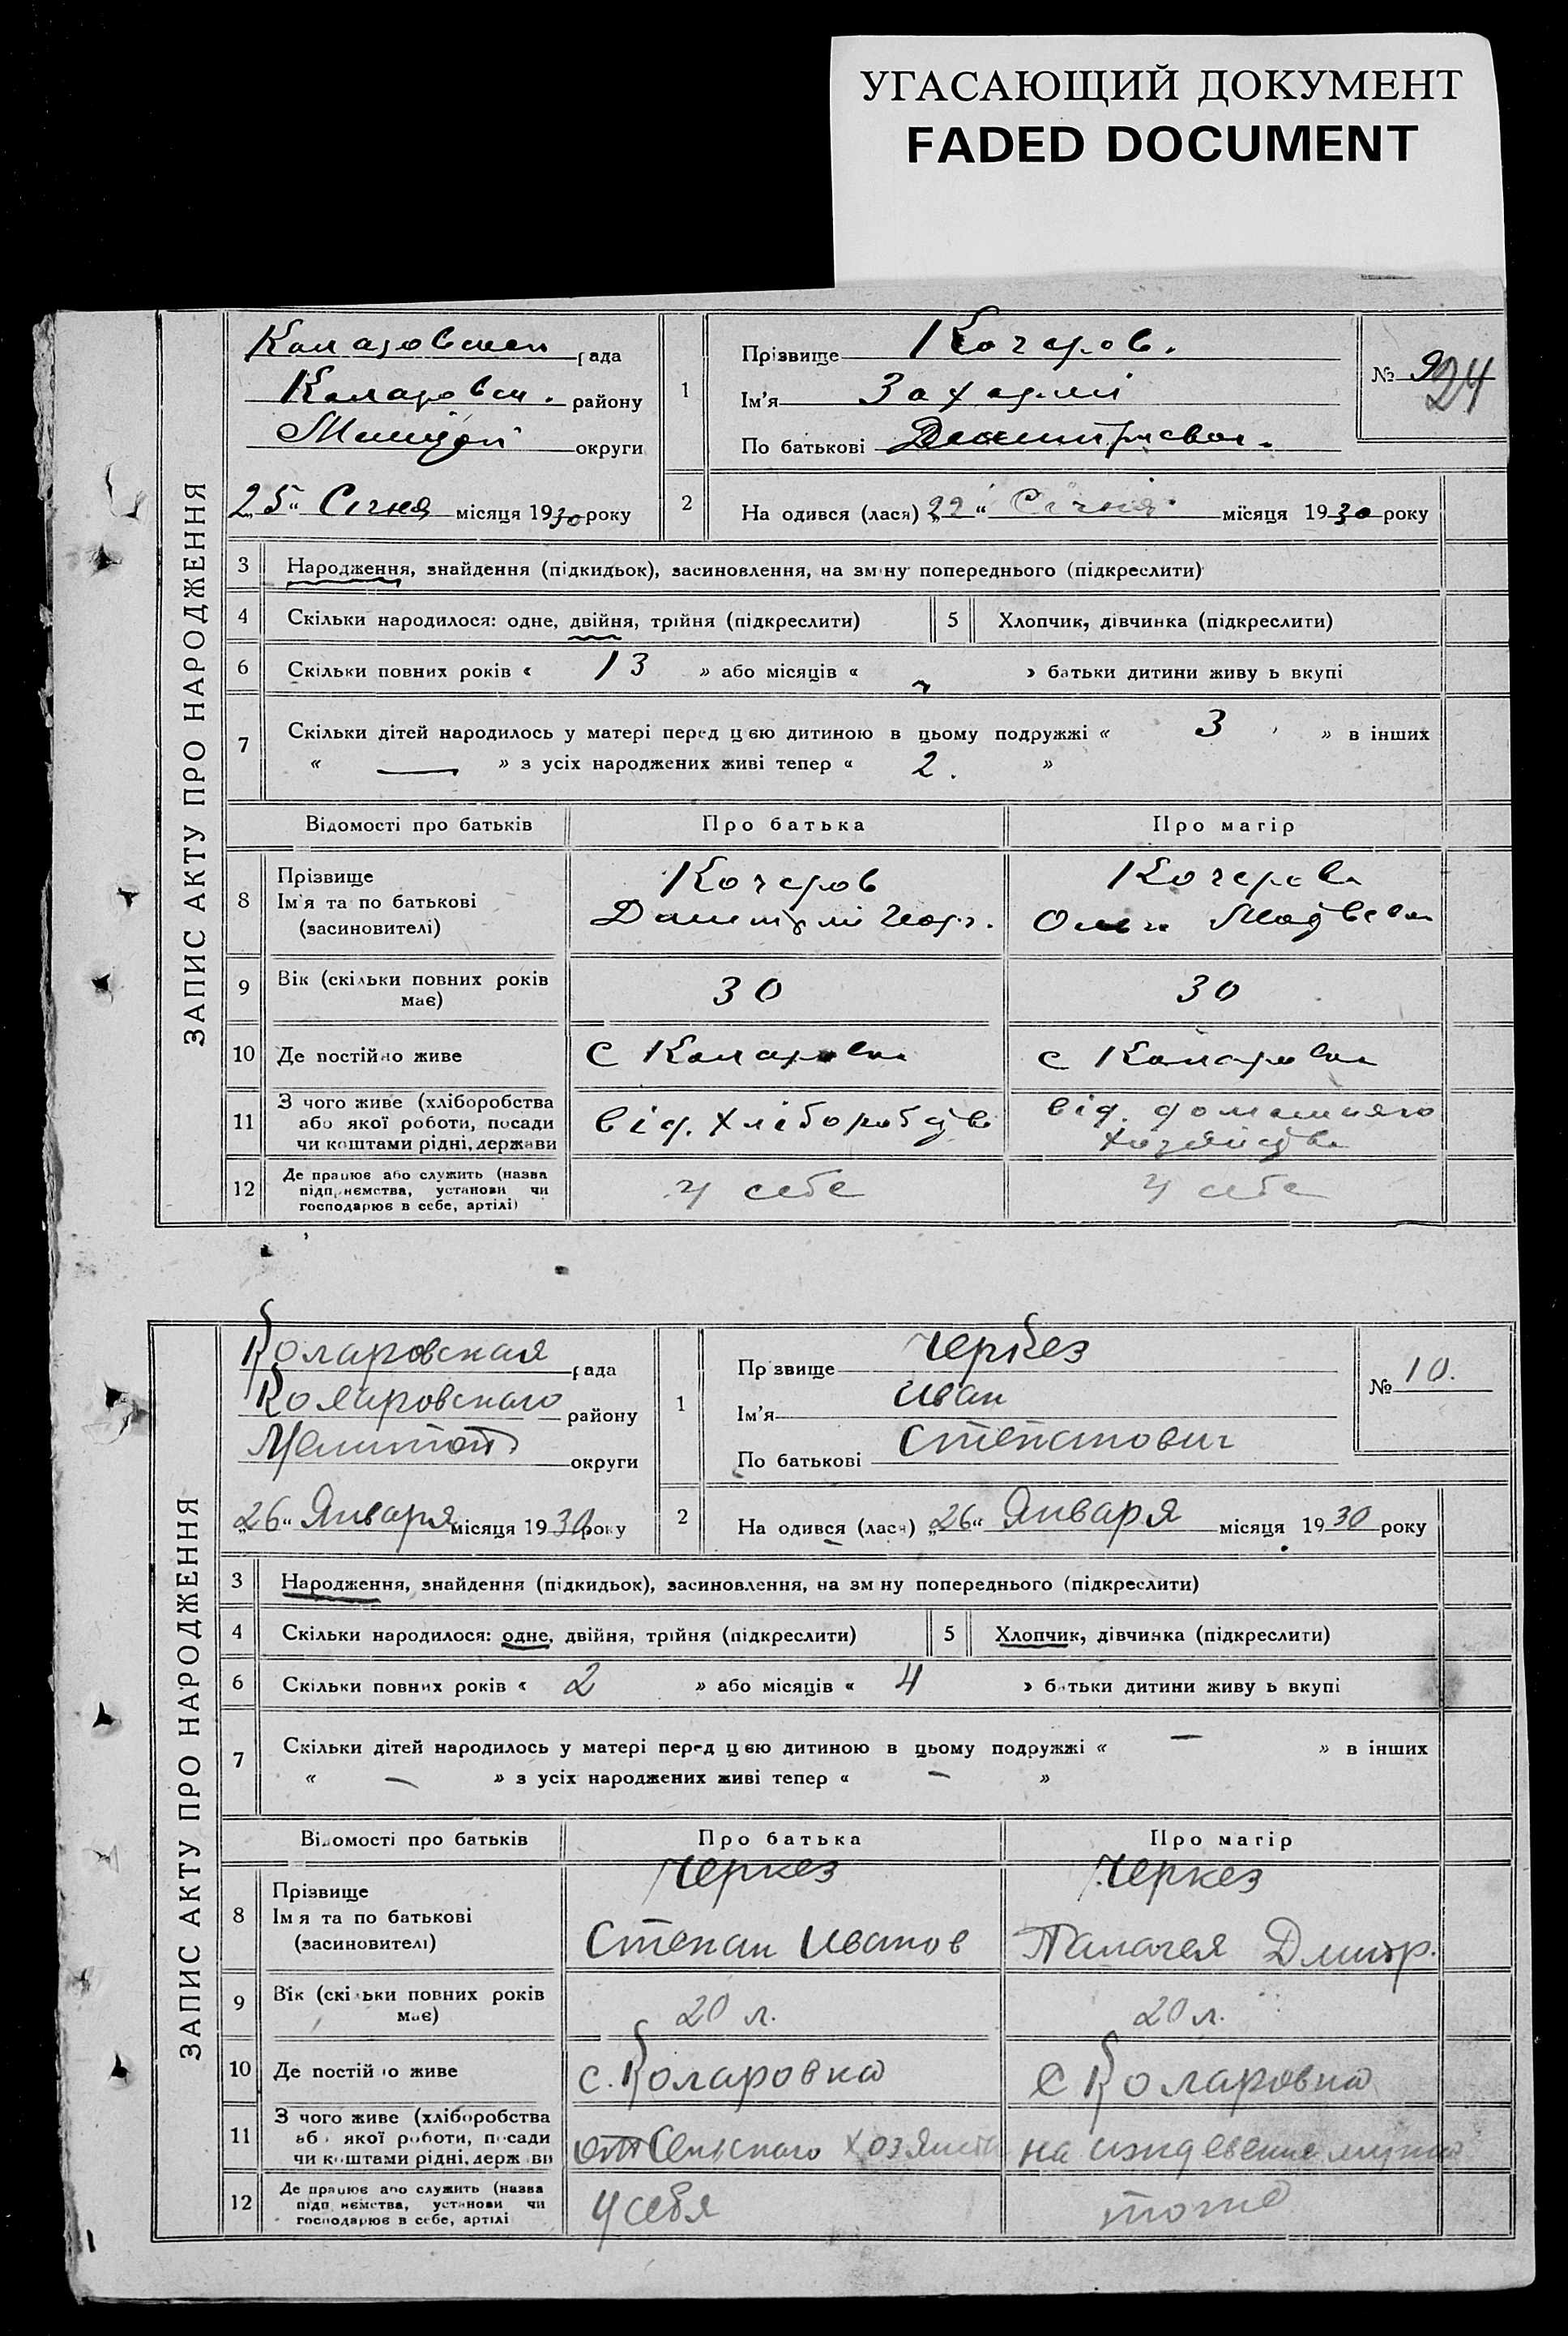 УГАСАЮЩИЙ ДОКУМЕНТ
FADED DOCUMENT
ЗАПИС АКТУ ПРО НАРОДЖЕННЯ
рада
району
округи
25 Січня місяця 1930 року
1
Прізвище Кочеров.
Ім'я
По батькові
№ 9
24
2
На одився (лася) „22“ Січня місяця 1930 року
3 Народження, знайдення (підкидьок), засиновлення, на зм ну попереднього (підкреслити)
4 Скільки народилося: одне, двійня, трійня (підкреслити)
5 Хлопчик, дівчинка (підкреслити)
6 Скільки повних років « 13 » або місяців « » батьки дитини живу ь вкупі
7 Скільки дітей народилось у матері перед цею дитиною в цьому подружжі « 3 » в інших
« — » з усіх народжених живі тепер « 2. »
Відомості про батьків Про батька Про матір
8 Прізвище
Ім'я та по батькові
(засиновителі)
Кочеров
Кочерова
Ольга
9 Вік (скільки повних років
має)
30 30
10 Де постійно живе
с Коларовка с Коларовка
11 З чого живе (хліборобства
або якої роботи, посади
чи коштами рідні, держави
від. хліборобства
від. домашнего
хозяйства
12 Де працює або служить (назва
підпр нємства, установи чи
господарює в себе, артілі)
у себе у себе
ЗАПИС АКТУ ПРО НАРОДЖЕННЯ
Коларовская рада
Коларовского району
округи
„26“ Января місяця 1930 року
1
Пр звище Черкез
Ім'я Иван
По батькові Степанович
№ 10.
2
На одився (лася) „26“ Января місяця 1930 року
3 Народження, знайдення (підкидьок), засиновлення, на зм ну попереднього (підкреслити)
4 Скільки народилося: одне, двійня, трійня (підкреслити)
5 Хлопчик, дівчинка (підкреслити)
6 Скільки повних років « 2 » або місяців « 4 » батьки дитини живу ь вкупі
7 Скільки дітей народилось у матері перед цею дитиною в цьому подружжі « — » в інших
« — » з усіх народжених живі тепер « — »
Відомості про батьків Про батька Про матір
8 Прізвище
Ім я та по батькові
(засиновителі)
Черкез
Степан Иванов
Черкез
Палагея Дмитр.
9 Вік (скі ьки повних років
має)
20 л. 20 л.
10 Де постій о живе
с. Коларовка с Коларовка
11 З чого живе (хліборобства
або якої роботи, посади
чи коштами рідні, держ ви
от Сельского хозяйства на иждевение мужа
12 Де працює або служить (назва
підп нємства, установи чи
господарює в себе, артілі
у себя тоже